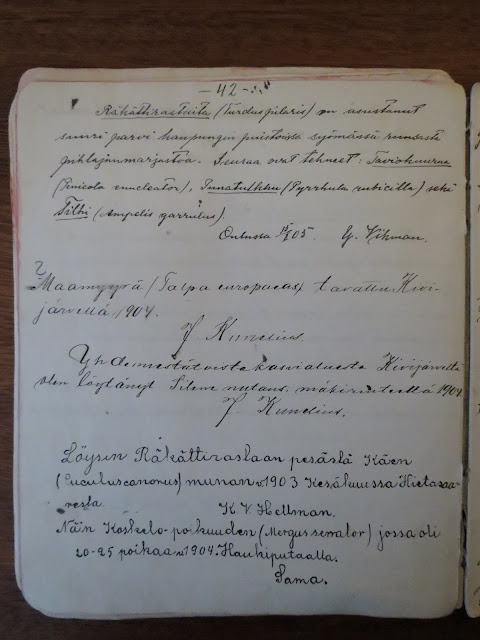 — 42 —
Räkättirastaita (Turdus pilaris) on asustanut
suuri parvi kaupungin puistoissa syömässä runsasta
pihlajanmarjastoa. Seuraa ovat tehneet: Taviokuurna
(Pinicola enucleator), Punatulkku (Pyrrhula rubicilla) sekä
Tilhi (Ampelis garrulus).
Oulussa 05. Y. Wikman.
?
Maamyyrä (Talpa europaea) tavattu Kivi-
järvellä 1904.
J. Kunelius.
Yhdennestätoista kasvialueesta Kivijärveltä
olen löytänyt Silene nutans, mäkirinteellä 1904
J. Kunelius.
Löysin Räkättirastaan pesästä Käen
(Cuculus canorus) munan v. 1903 Kesäkuussa Hietasaa-
resta. K V Hellman.
Näin Koskelo-poikuuden (Mergus serrator) jossa oli
20-25 poikaa v. 1904. Haukiputaalla.
Sama.